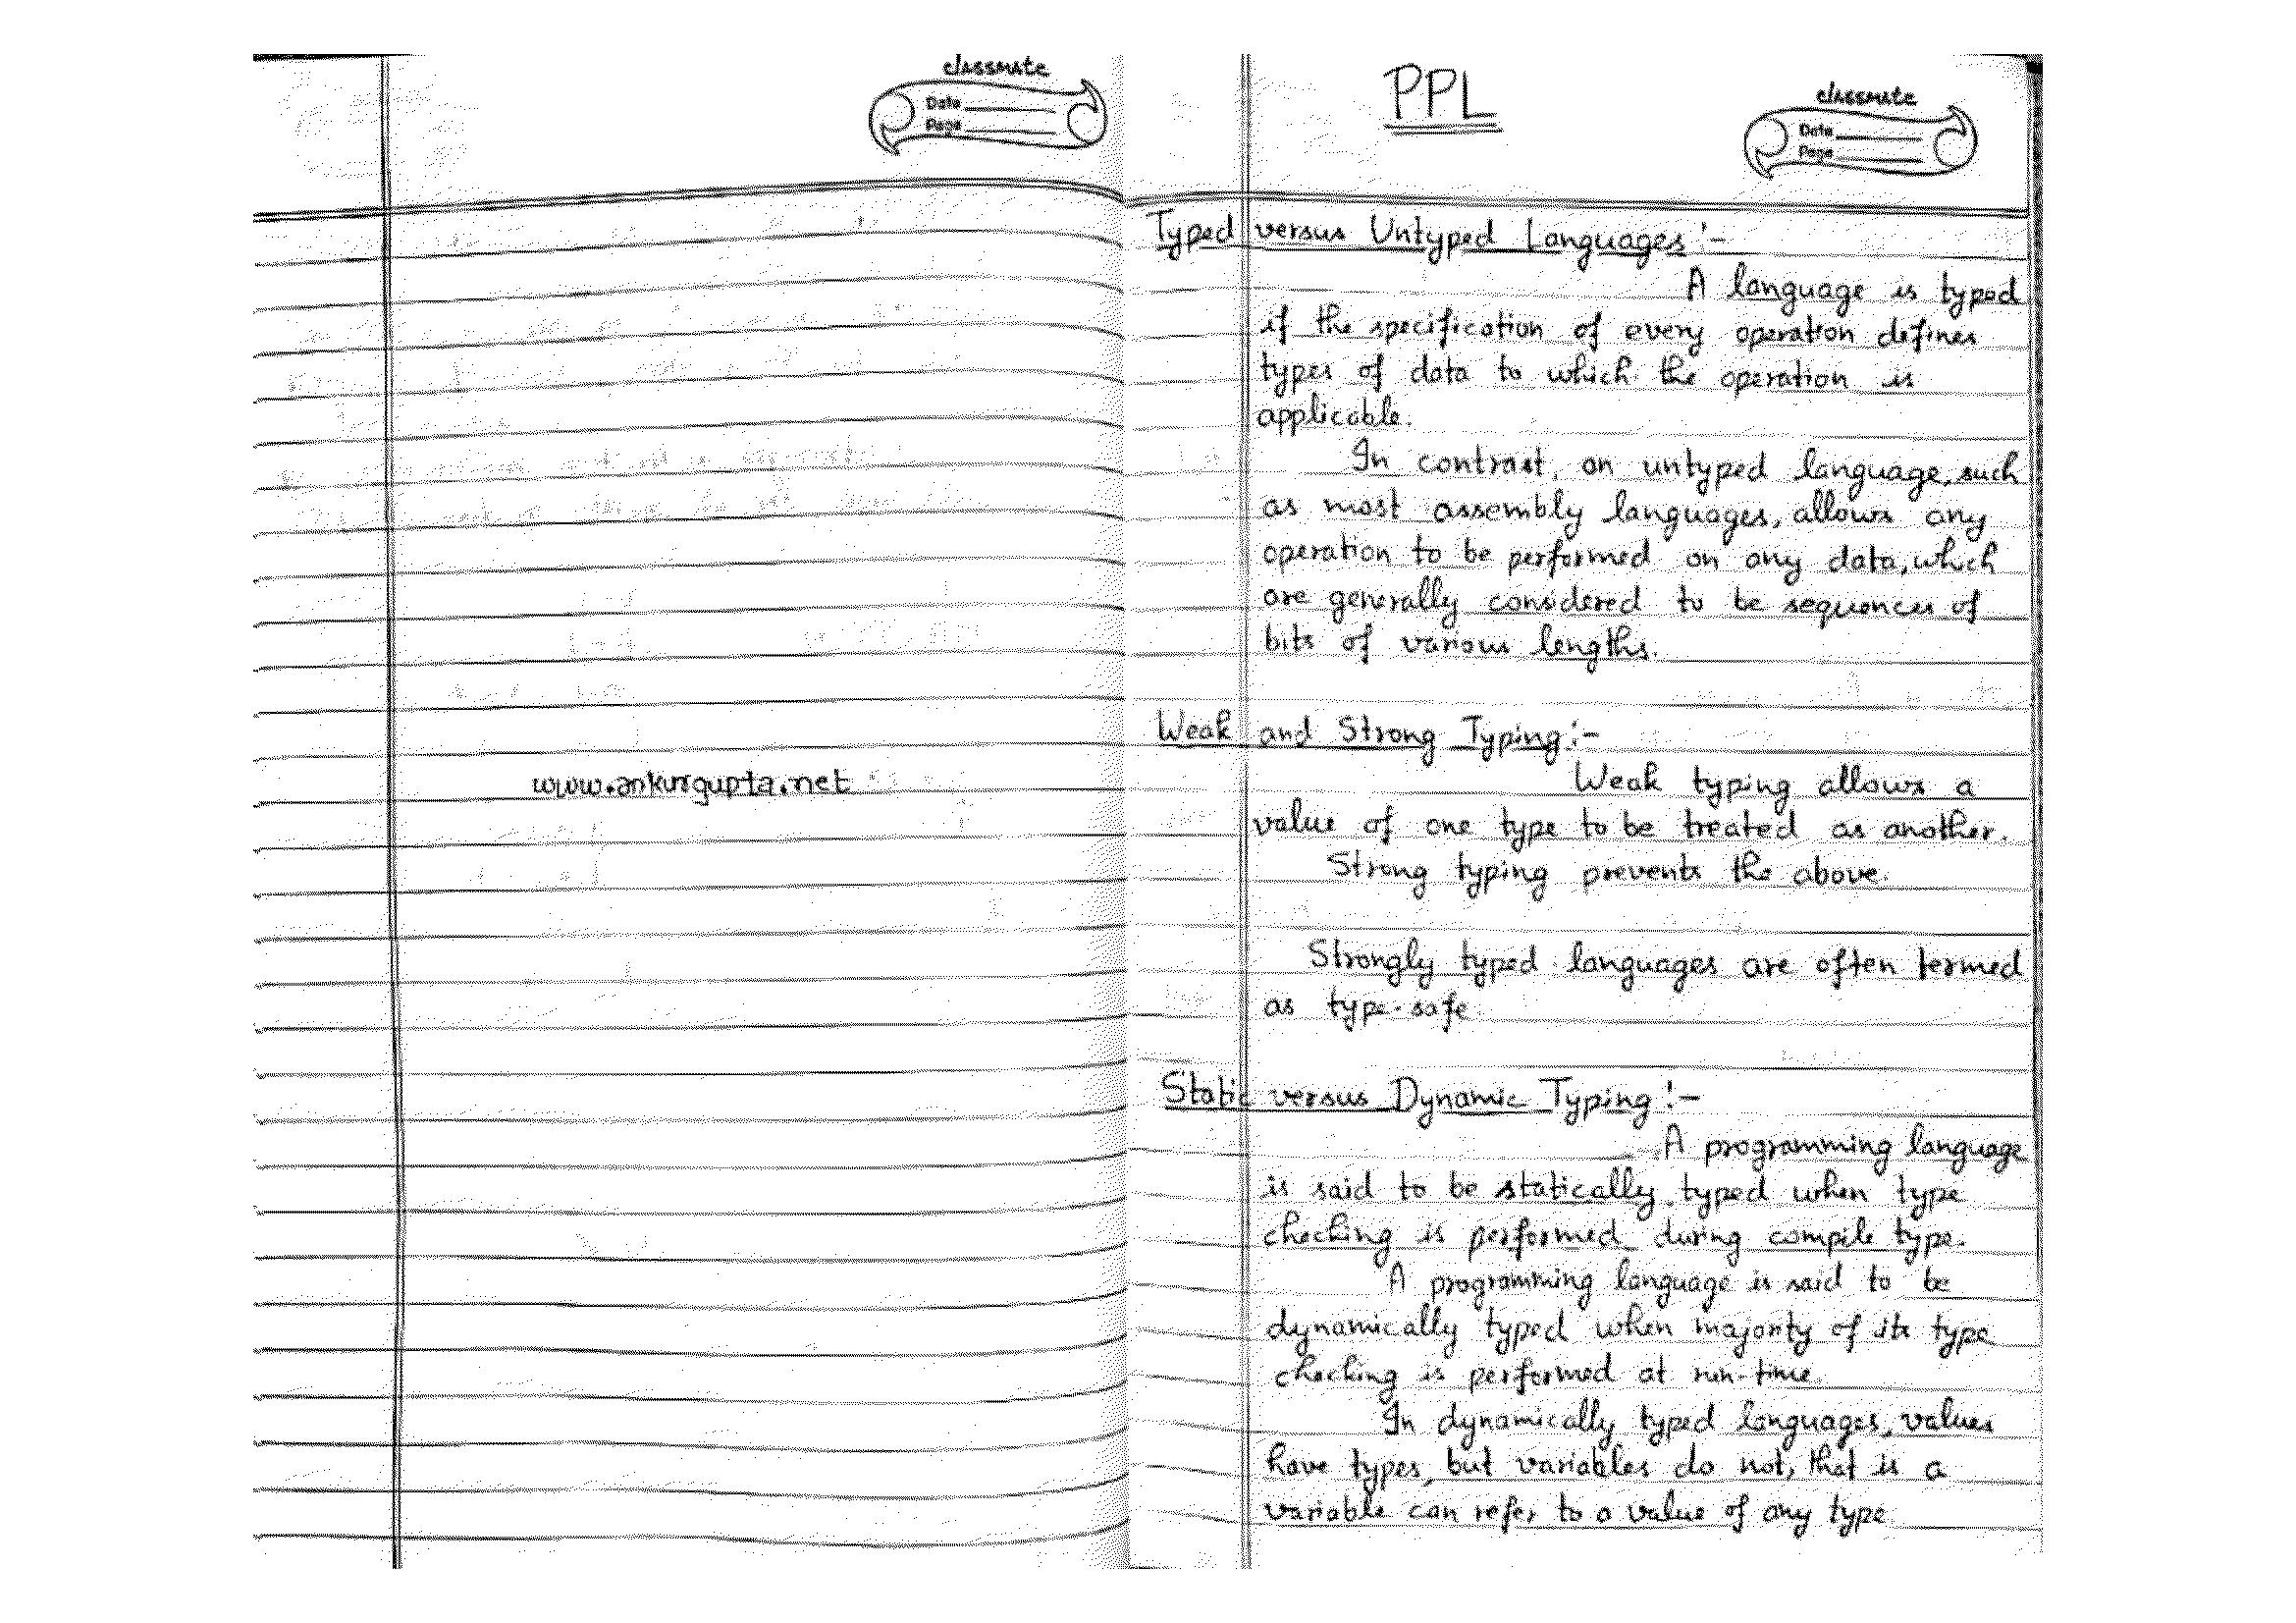 classmate
Date
Page
www.ankurgupta.net
PPL
classmate
Date
Page
Typed versus Untyped Languages :-
A language is typed
if the specification of every operation defines
types of data to which the operation is
applicable.
In contrast, an untyped language, such
as most assembly languages, allows any
operation to be performed on any data, which
are generally considered to be sequences of
bits of various lengths.
Weak and Strong Typing :-
Weak typing allows a
value of one type to be treated as another.
Strong typing prevents the above.
Strongly typed languages are often termed
as type-safe
Static versus Dynamic Typing :-
A programming language
is said to be statically typed when type
checking is performed during compile type.
A programming language is said to be
dynamically typed when majority of its type
checking is performed at run-time.
In dynamically typed languages, values
have types, but variables do not, that is a
variable can refer to a value of any type